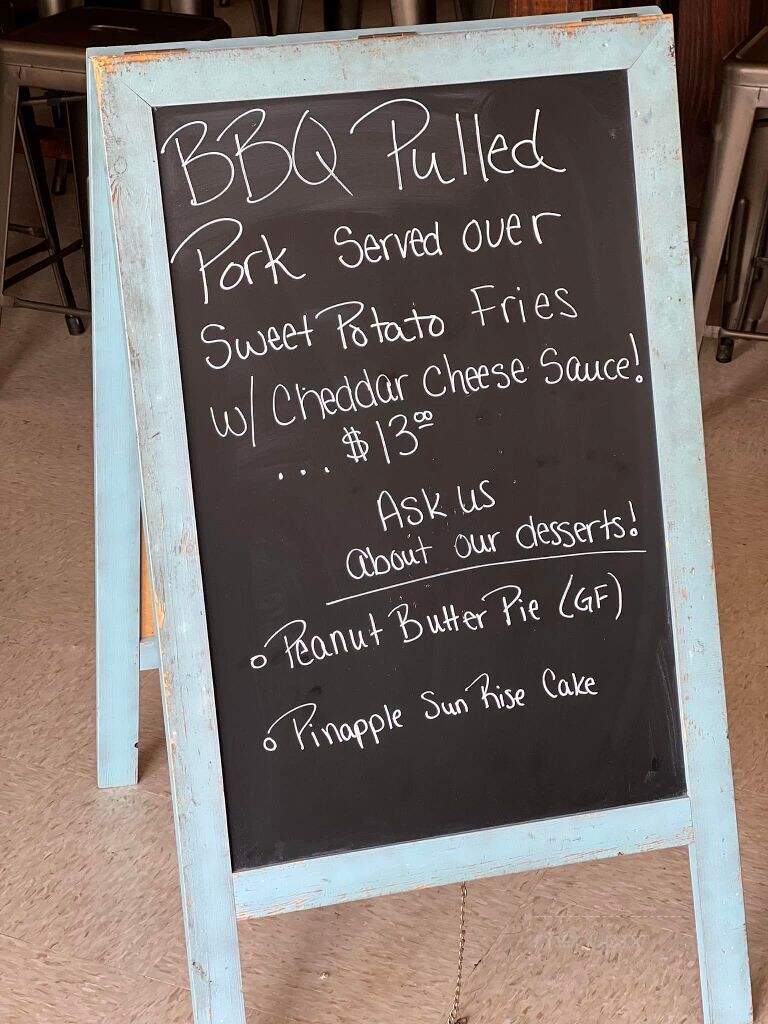 BBQ Pulled
Pork Served over
Sweet Potato Fries
w/ Cheddar Cheese Sauce!
... $13.00
Ask us
about our desserts!
o Peanut Butter Pie (GF)
o Pinapple Sun Rise Cake